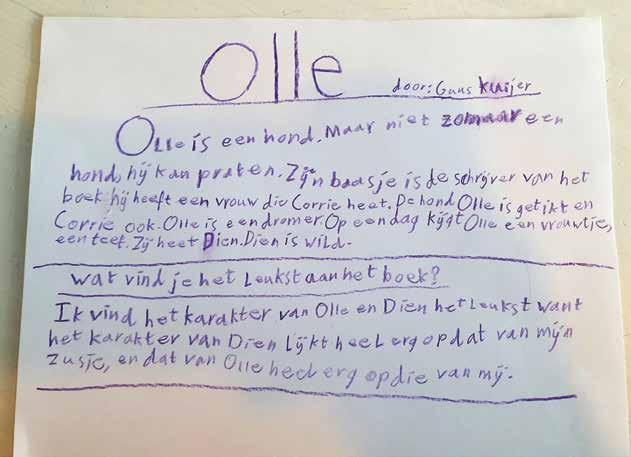 Olle
door: Guus kuijer
Olle is een hond. Maar niet zomaar een
hond, hij kan praten. Zijn baasje is de schrijver van het
boek hij heeft een vrouw die Corrie heet. De hond Olle is getikt en
Corrie ook. Olle is een dromer. Op een dag kijgt Olle een vrouwtje,
een teef. Zij heet Dien. Dien is wild.
wat vind je het Leukst aan het boek?
Ik vind het karakter van Olle en Dien het Leukst want
het karakter van Dien Lijkt heel erg op dat van mijn
zusje, en dat van Olle heel erg op die van mij.